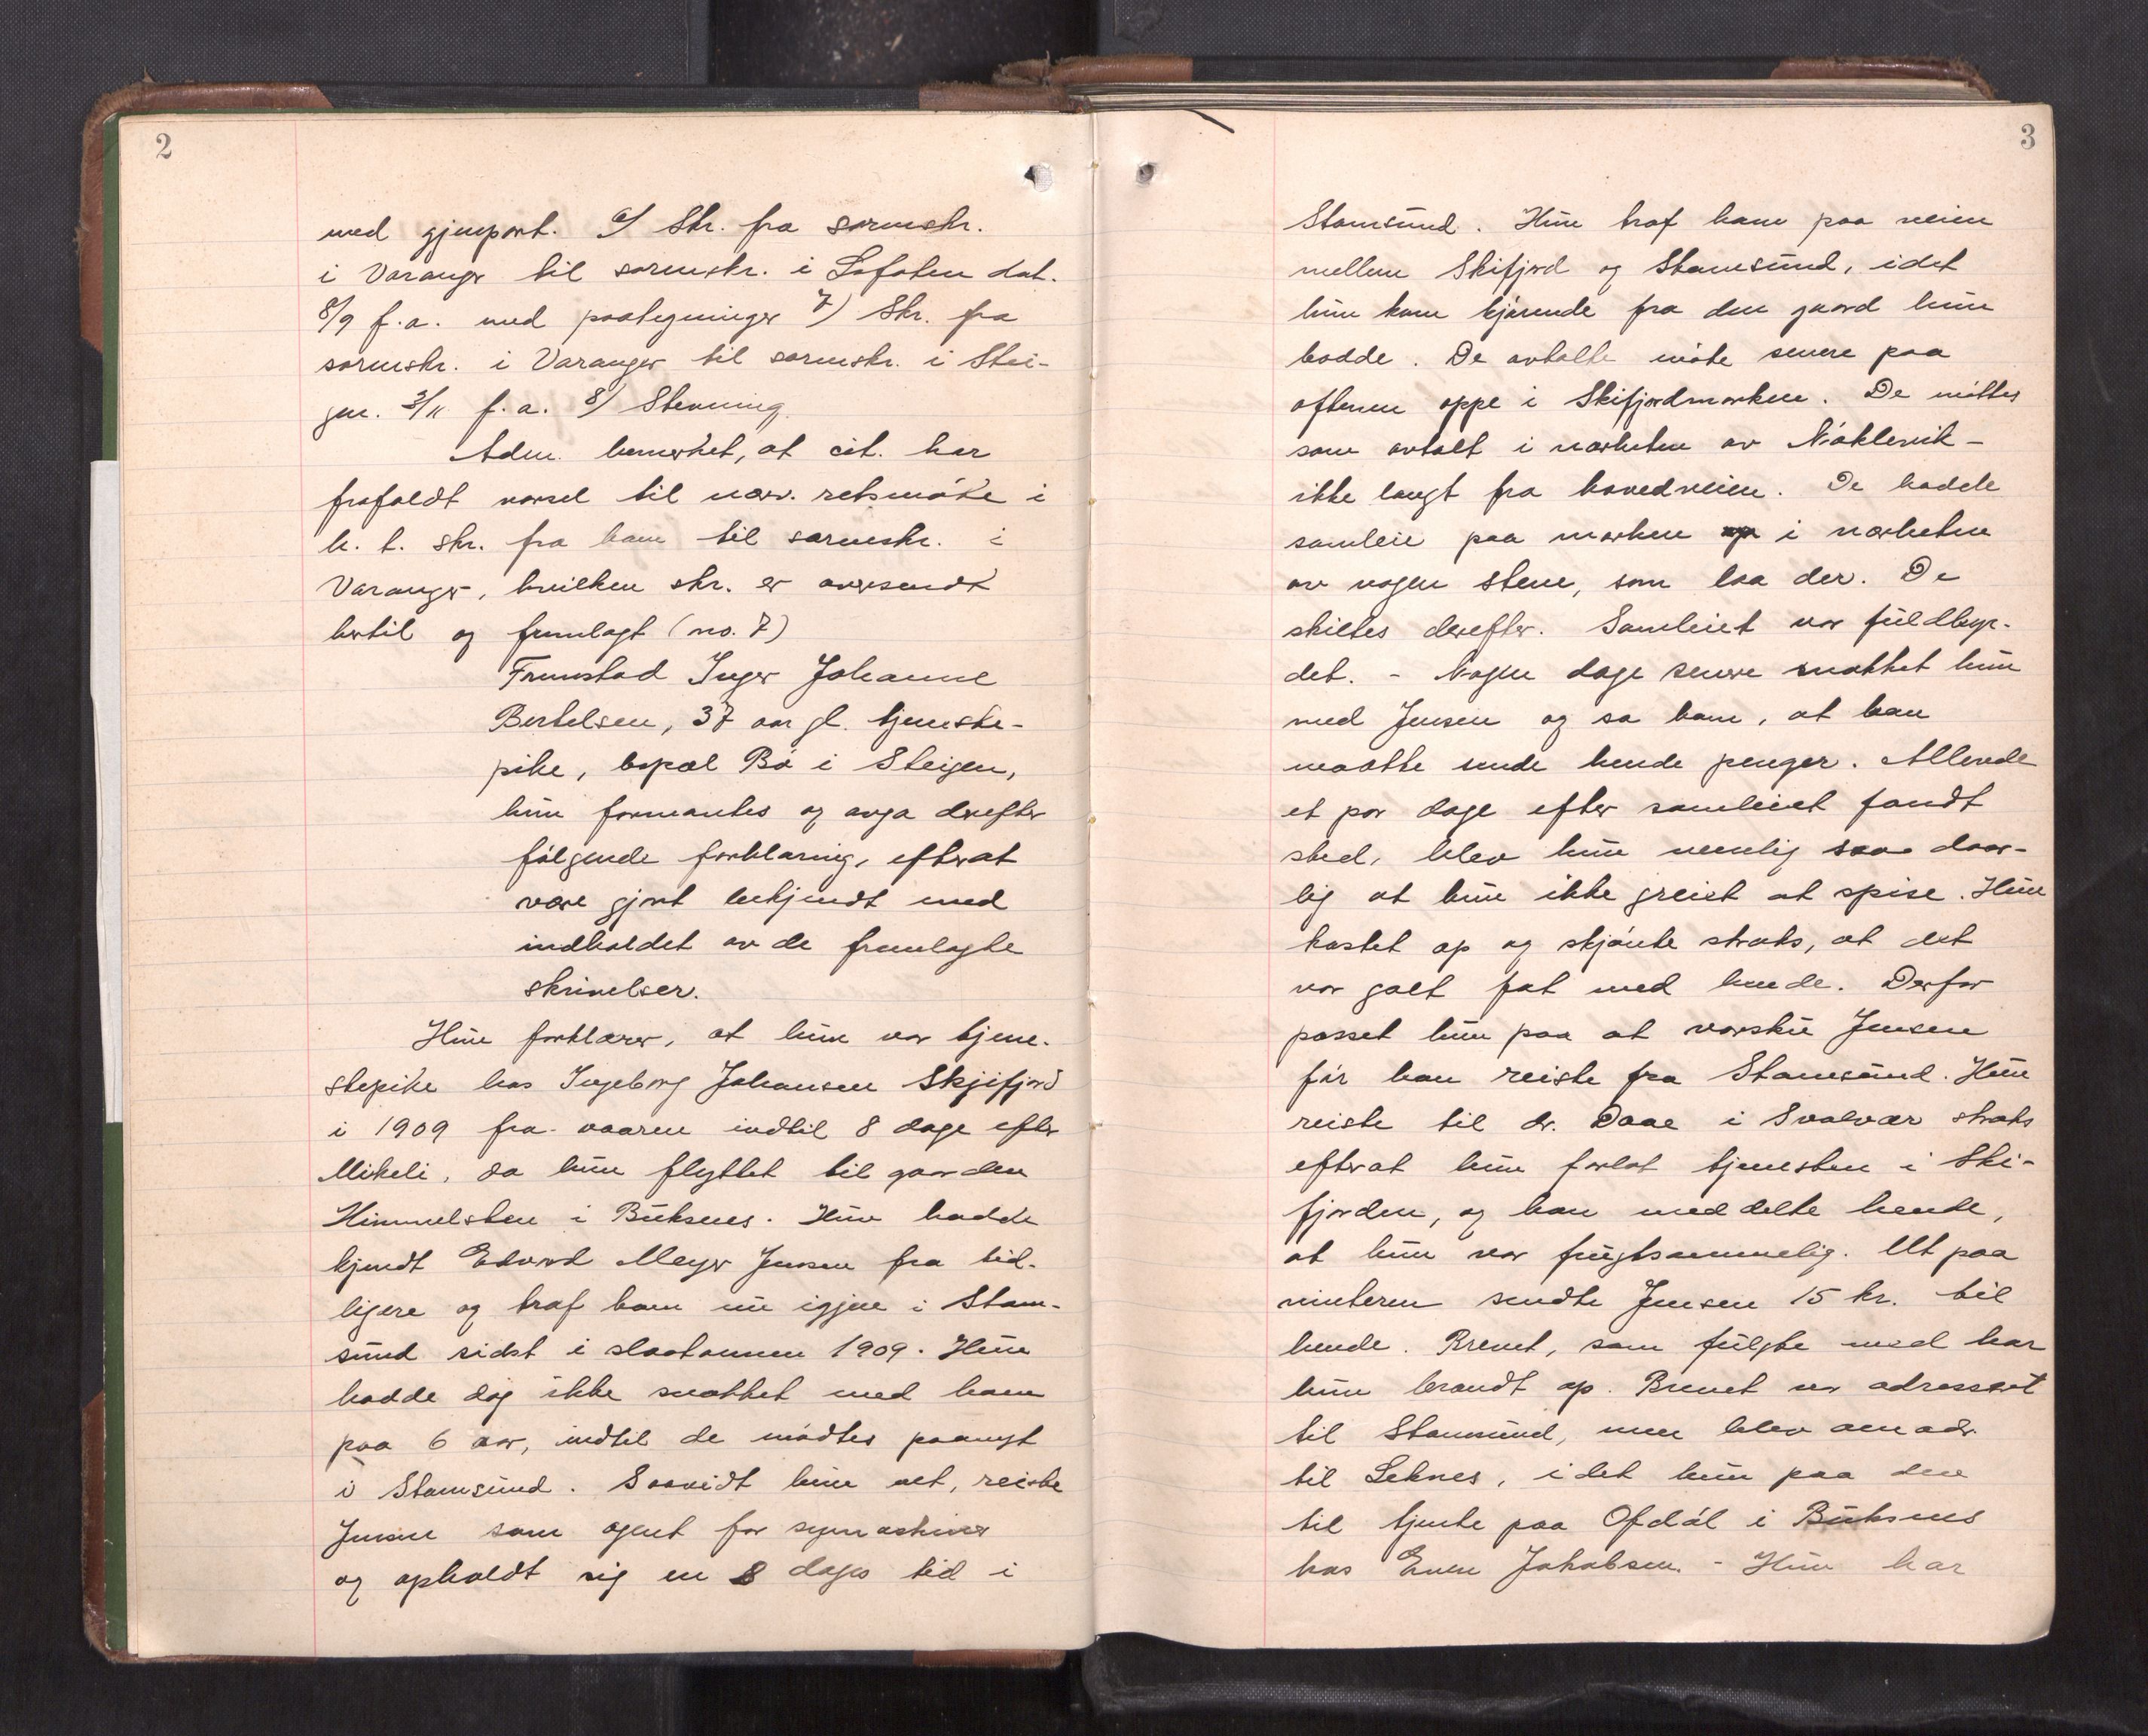 2
med gjenpart. 6/ Skr. fra sorenskr.
i Varanger til sorenskr. i Lofoten dat.
8/9 f.a. med paategninger 7) Skr. fra
sorenskr. i Varanger til sorenskr. i Stei-
gen. 3/11 f.a. 8/ Stevning.
Adm. bemerket, at cit. har
frafaldt varsel til nærv. retsmöte i
h. t. skr. fra ham til sorenskr. i
Varanger, hvilken skr. er oversendt
hertil og fremlagt (no. 7)
Fremstod Inger Johanne
Bertelsen, 37 aar gl. tjeneste-
pike, bopæl Bö i Steigen,
hun formantes og avga derefter
fölgende forklaring, efterat
være gjort bekjendt med
indholdet av de fremlagte
skrivelser.
Hun forklarer, at hun var tjene-
stepike hos Ingeborg Johansen Skjifjord
i 1909 fra vaaren indtil 8 dage efter
Mikeli, da hun flyttet til gaarden
Himmelsten i Buksnes. Hun hadde
kjendt Edvard Meyer Jensen fra tid-
ligere og traf ham nu igjen i Stam-
sund sidst i slaatonnen 1909. Hun
hadde dog ikke snakket med ham
paa 6 aar, indtil de mödtes paanyt
i Stamsund. Saavidt hun vet, reiste
Jensen som agent for symaskiner
og opholdt sig en 8 dages tid i
3
Stamsund. Hun traf ham paa veien
mellem Skifjord og Stamsund, idet
hun kom kjörende fra den gaard hun
bodde. De avtalte möte senere paa
aftenen oppe i Skifjordmarken. De möttes
som avtalt i nærheten av Nöklevik -
ikke langt fra hovedveien. De hadde
samleie paa marken i nærheten
av nogen stene, som laa der. De
skiltes derefter. Samleiet var fuldbyr-
det. - Nogen dage senere snakket hun
med Jensen og sa ham, at han
maatte sende hende penger. Allerede
et par dage efter samleiet fandt
sted, blev hun nemlig saa daar-
lig at hun ikke greiet at spise. Hun
kastet op og skjönte straks, at det
var galt fat med hende. Derfor
passet hun paa at varsku Jensen
för han reiste fra Stamsund. Hun
reiste til dr. Daae i Svolvær straks
efterat hun forlot tjenesten i Ski-
fjorden, og han meddelte hende,
at hun var frugtsommelig. Ut paa
vinteren sendte Jensen 15 kr. til
hende. Brevet, som fulgte med har
hun brændt op. Brevet var adressert
til Stamsund, men blev omadr.
til Leknes, idet hun paa den
tid tjente paa Ofdal i Buksnes
hos Even Jakobsen. - Hun har